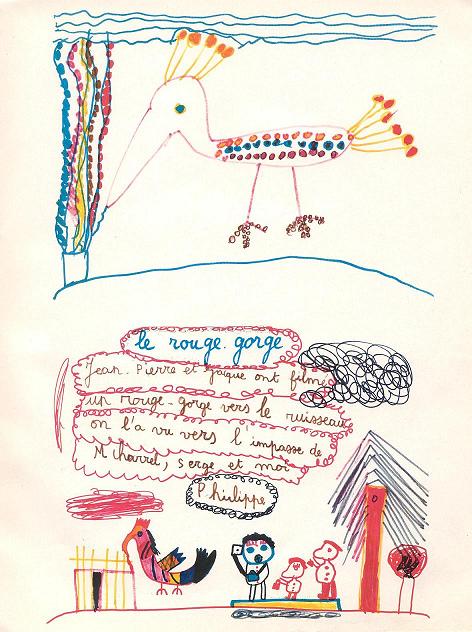 le rouge-gorge
Jean-Pierre et jaque ont filmé
un rouge-gorge vers le ruisseau
on l'a vu vers l'impasse de
M charrel, serge et moi
Philippe